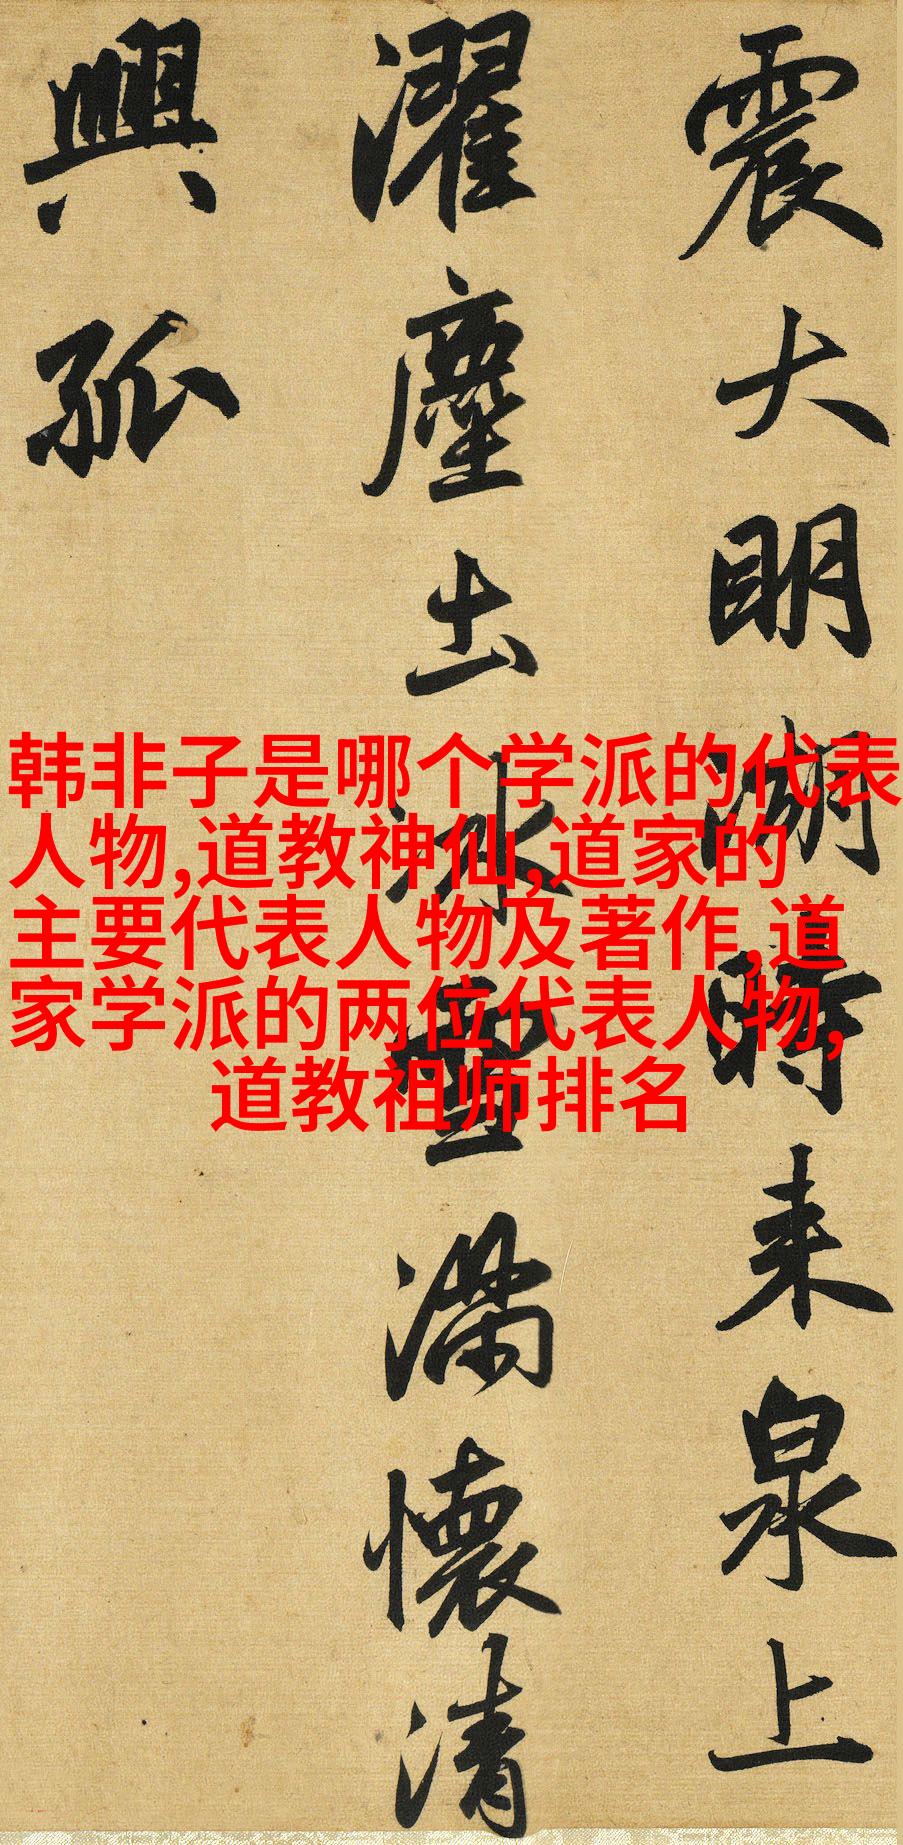 震大明湖時来泉上
濯塵土冰雪滿懷清
興孤
韩非子是哪个学派的代表
人物,道教神仙,道家的
主要代表人物及著作,道
家学派的两位代表人物,
道教祖师排名